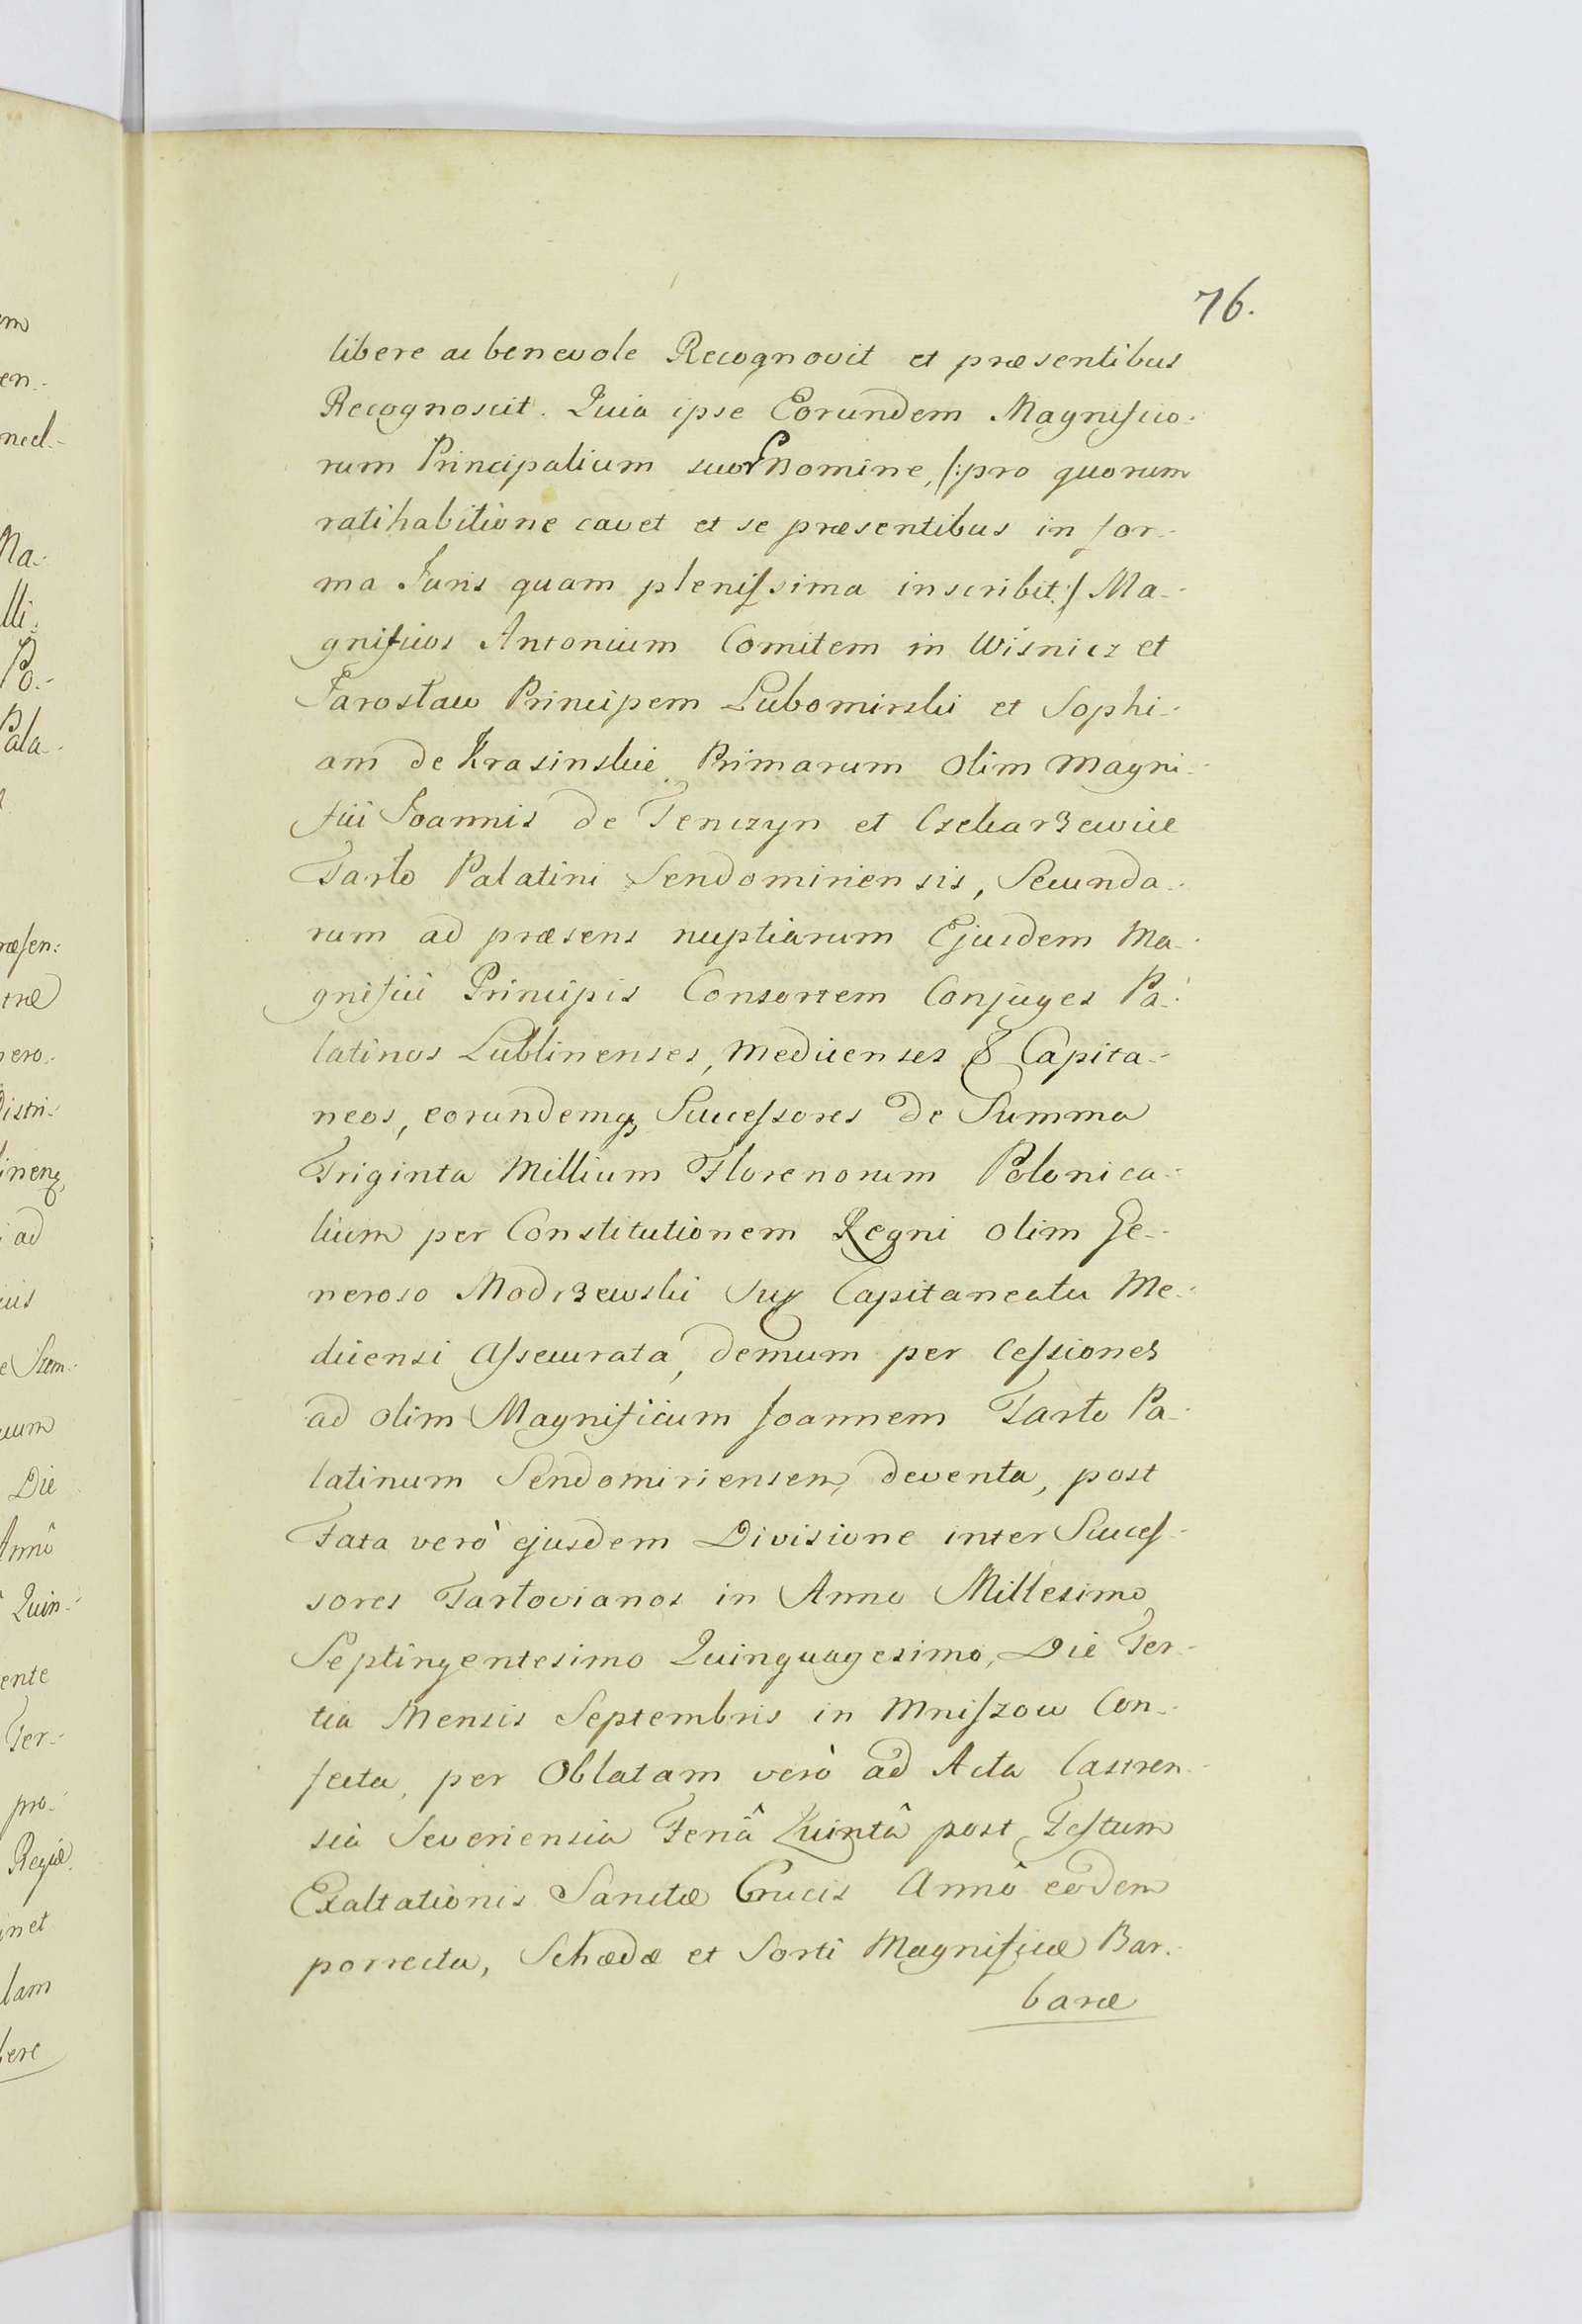 76.
libere ac benevole Recognovit et præsentibus
Recognoscit. Quia ipse Eorundem Magnificо-
rum Principalium suor Nomine, /:pro quorum
ratihabitione cavet et se præsentibus in for-
ma Juris quam plenissima inscribit:/ Ma-
gnificos Antonium Comitem in Wisnicz et
Jarosław Principem Lubomirski et Sophi-
am de Krasinskie Primarum olim Magni-
fici Joannis de Tenczyn et Czekarzewice
Tarło Palatini Sendomiriensis, Secunda-
rum ad præsens nuptiarum Ejusdem Ma-
gnifici Principis Consortem Conjuges Pa-
latinos Lublinenses, Medicenses & Capita-
neos, eorundemq, Successores de Summa
Triginta Millium Florenorum Polonica-
lium per Constitutionem Regni olim Ge-
neroso Modrzewski Sup Capitaneatu Me-
dicensi assecurata, demum per Cessiones
ad olim Magnificum Joannem Tarło Pa-
latinum Sendomiriensem, deventa, post
Fata verò ejusdem Divisione inter Succes-
sores Tarłovianos in Anno Millesimo
Septingentesimo Quinquagesimo, Die Ter-
tia Mensis Septembris in Mniszow Con-
fecta, per Oblatam verò ad Acta Castren-
sia Severiensia Feriâ Quintâ post Festum
Exaltationis Sanctæ Crucis Annô eodem
porrecta, Schædæ et Sorti Magnificæ Bar-
baræ
em
en.-
necl.-
Ma.-
lli.-
Po.-
Pala.-
ræsen:
træ
nero.-
Distri.-
linenq,
ad
ius
e Stem.-
uum
Die
Annô
Quin.-
ente
Ter.-
pro.-
Regiæ.
inet
lam
bere